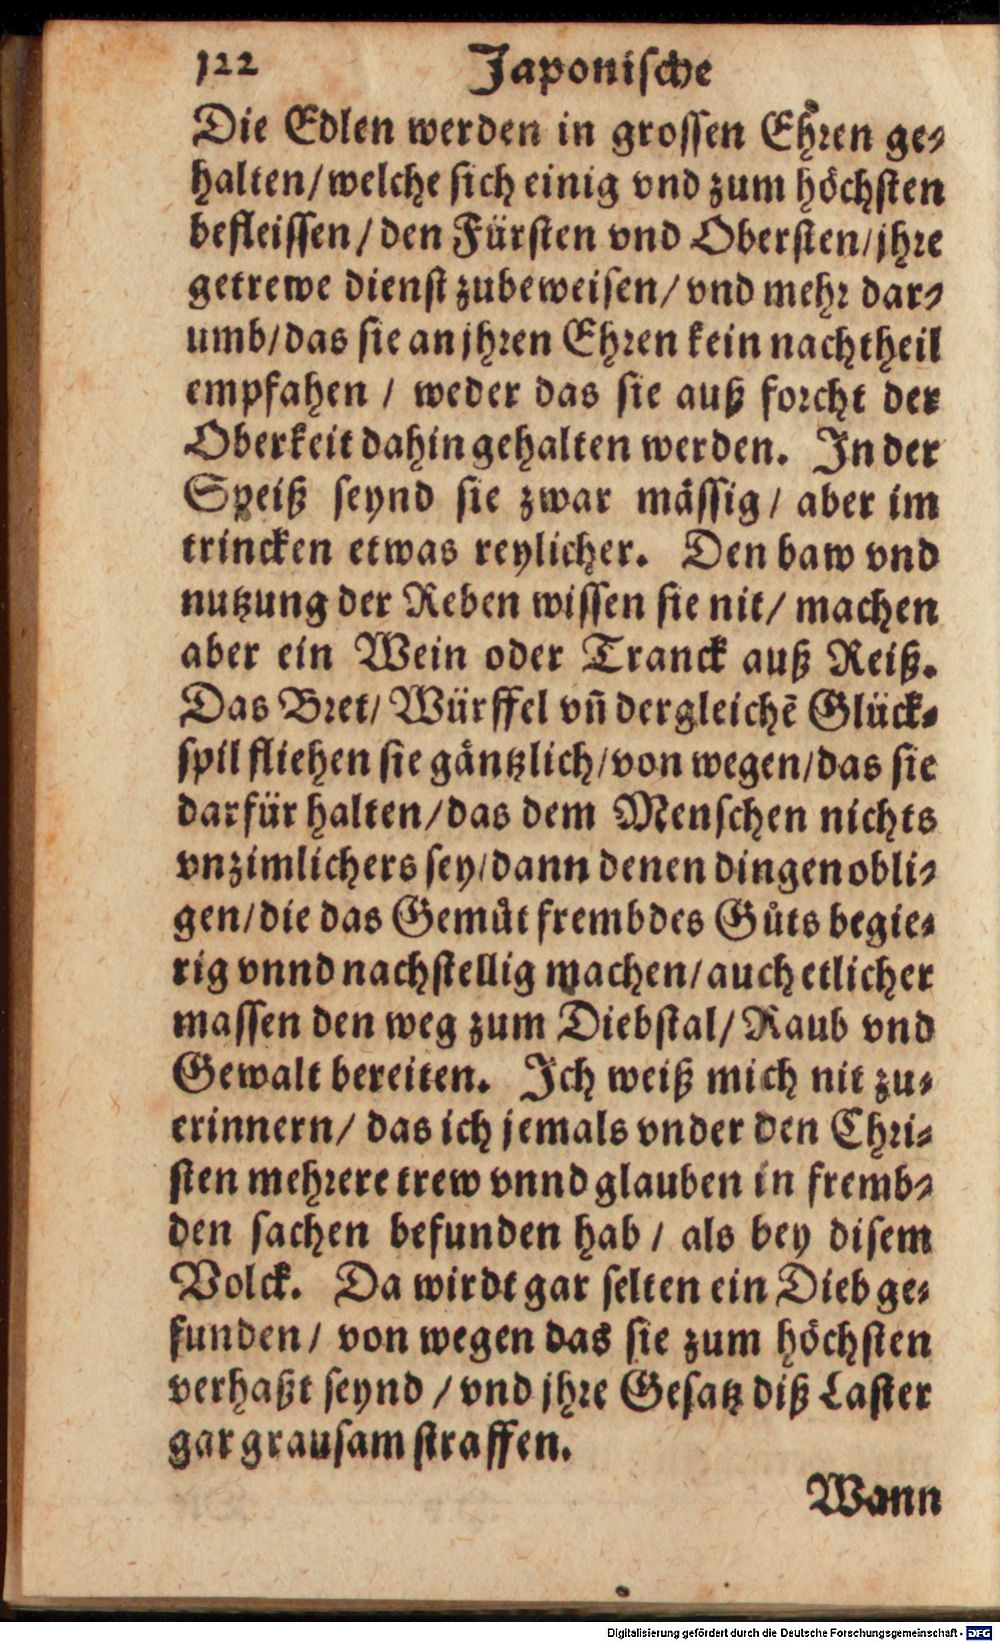 122 Japonische
Die Edlen werden in grossen Ehren ge-
halten/welche sich einig vnd zum höchsten
befleissen/den Fürsten vnd Obersten/jhre
getrewe dienst zubeweisen/vnd mehr dar-
umb/das sie an jhren Ehren kein nachtheil
empfahen / weder das sie auß forcht der
Oberkeit dahin gehalten werden. In der
Speiß seynd sie zwar mässig/ aber im
trincken etwas reylicher. Den baw vnd
nutzung der Reben wissen sie nit/ machen
aber ein Wein oder Tranck auß Reiß.
Das Bret/ Würffel vn̄ dergleichē Glück-
spil fliehen sie gäntzlich/von wegen/das sie
darfür halten/das dem Menschen nichts
vnzimlichers sey/dann denen dingen obli-
gen/die das Gemůt frembdes Gůts begie-
rig vnnd nachstellig machen/auch etlicher
massen den weg zum Diebstal/Raub vnd
Gewalt bereiten. Ich weiß mich nit zu-
erinnern/ das ich jemals vnder den Chri-
sten mehrere trew vnnd glauben in fremb-
den sachen befunden hab / als bey disem
Volck. Da wirdt gar selten ein Dieb ge-
funden/ von wegen das sie zum höchsten
verhaßt seynd /vnd jhre Gesatz diß Laster
gar grausam straffen.
Wann
Digitalisierung gefördert durch die Deutsche Forschungsgemeinschaft - DFG